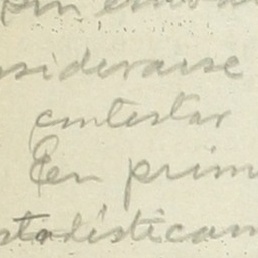 siderarse
contestar
En prim
stadistican